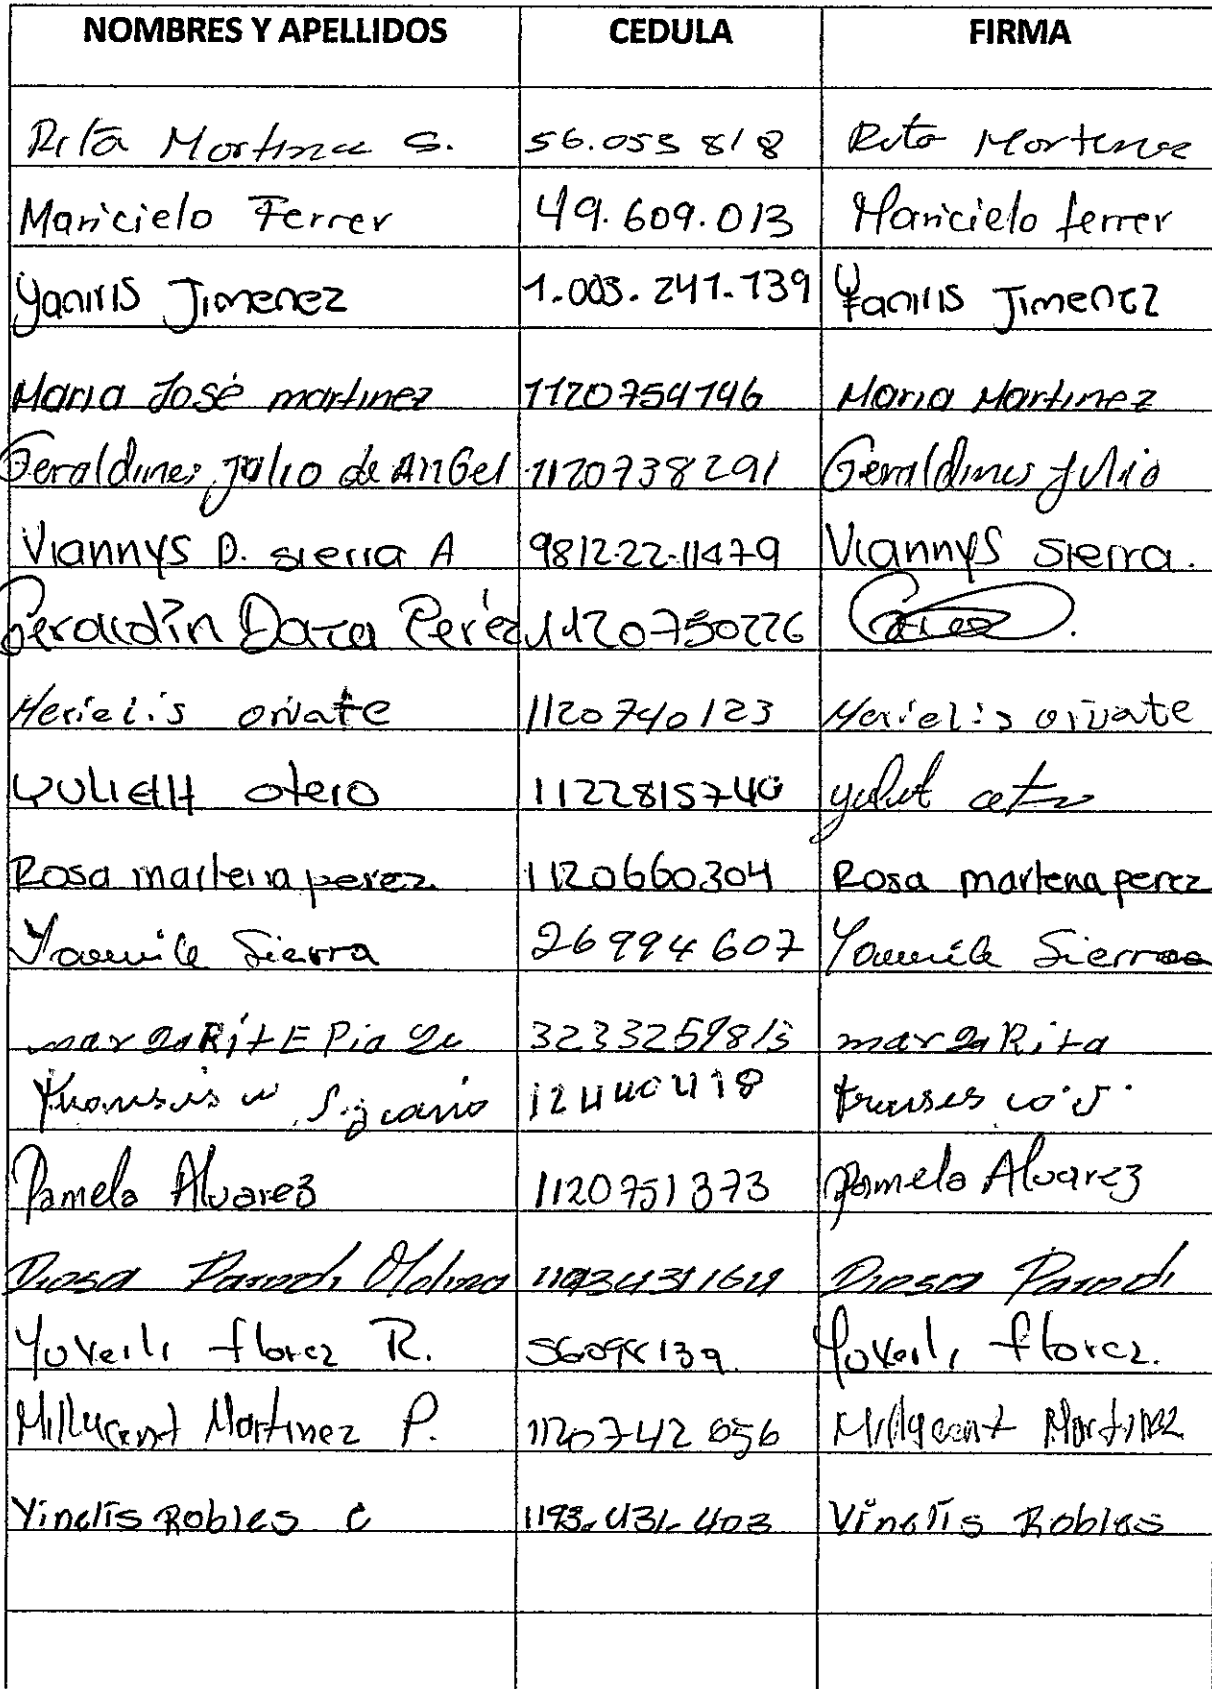 NOMBRES Y APELLIDOS CEDULA FIRMA
Rita Martinez S. 56.053 818 Rita Martinez
Maricielo Ferrer 49.609.013 Maricielo ferrer
Yaniris Jimenez 1.003.241.139 Yaniris Jimenez
Maria José martinez 1120754146 Maria Martinez
Geraldines Julio de AnGel 1120738291 Geraldines Julio
Viannys D. sierra A 981222-11479 Viannys sierra.
Geraldin Daza Peréz 1120750226
Merielis oñate 1120740123 Merielis oñate
YuLiEtH otero 1122815740
Rosa marlena perez 1120660304 Rosa marlena perez
Yamile Sierra 26994607 Yamile Sierra
margaRitE 3233259813 margaRita
12440418
Pamela Alvarez 1120751373 Pamela Alvarez
Diosa Parodi Molina 1193431164 Diosa Parodi
Yoveili florez R. Yoveili florez.
Millycent Martinez P. 1120742056 Millycent Martinez
Yinelis Robles C 1193.431.403 Yinelis Robles